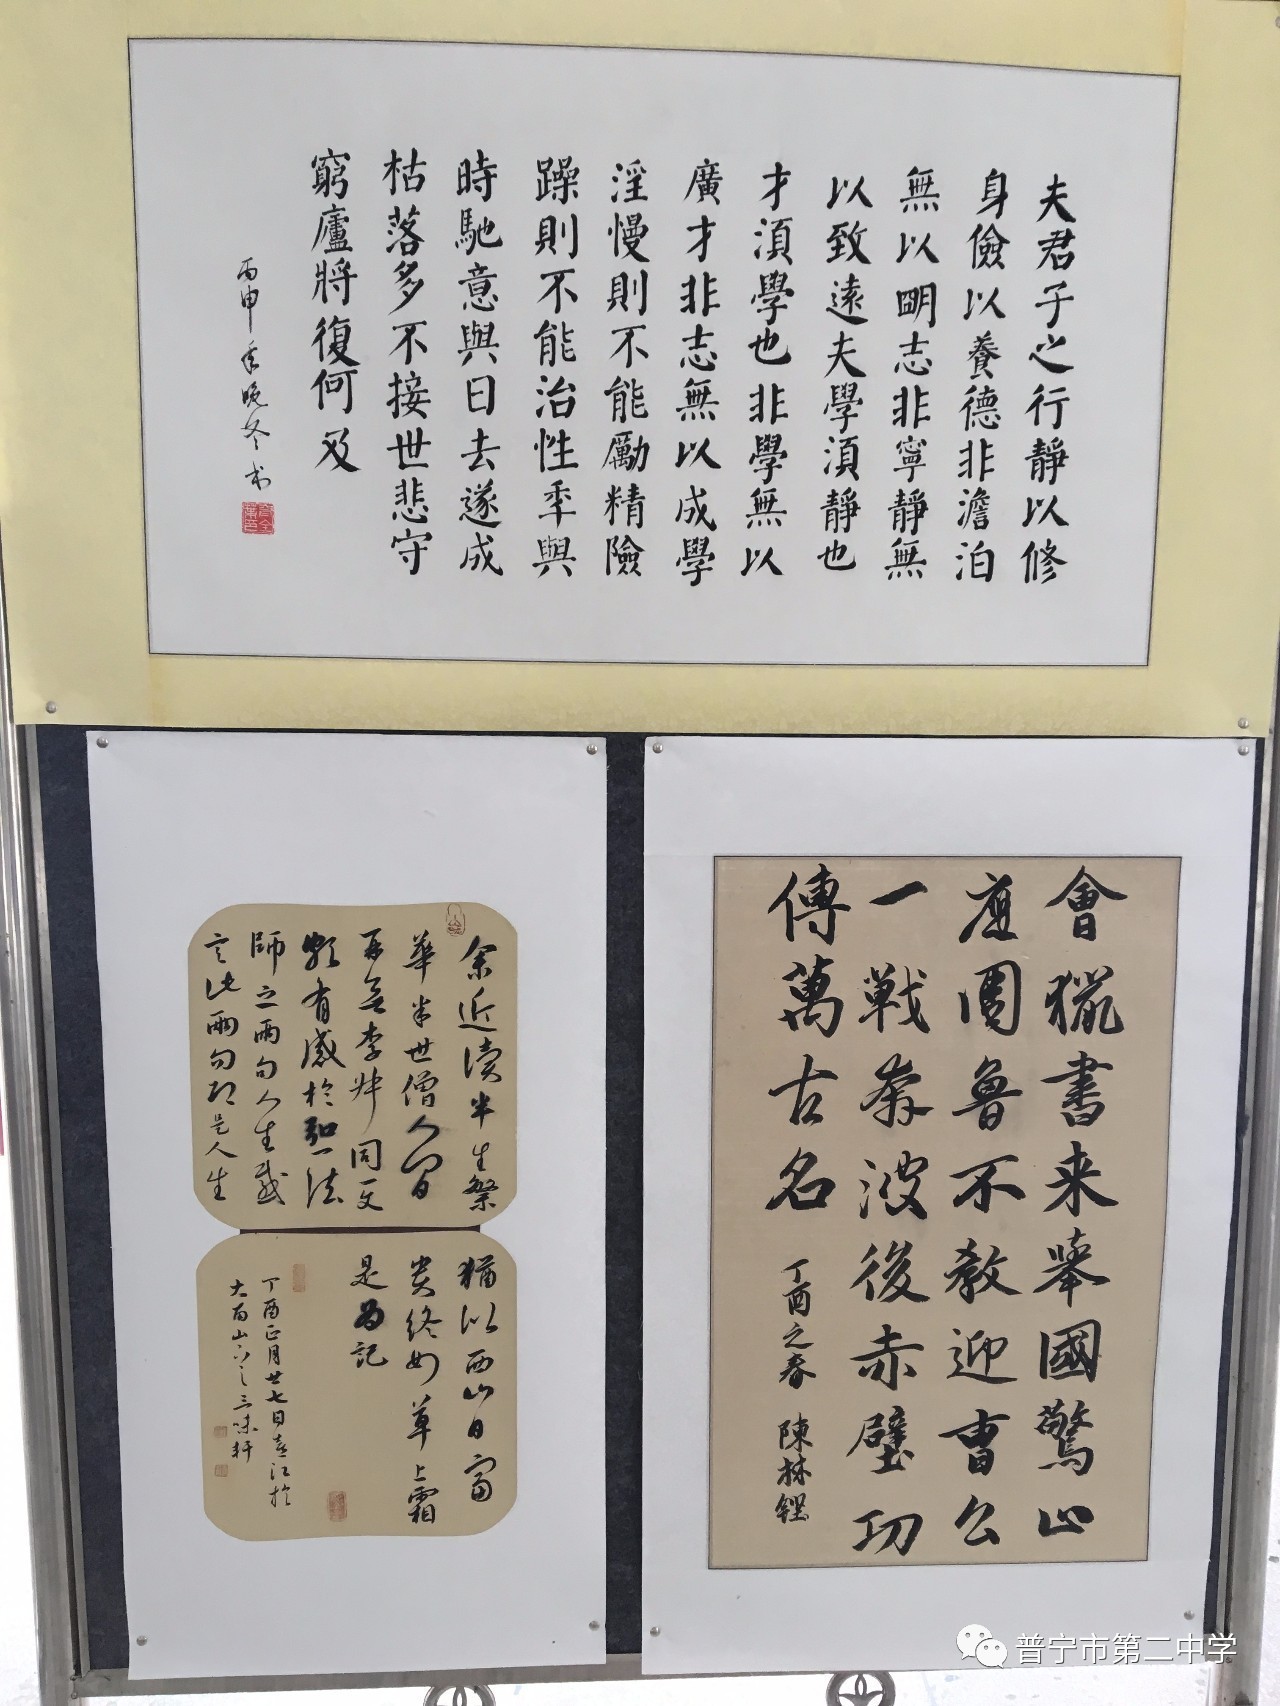 夫君子之行靜以修
身儉以養德非澹泊
無以明志非寧靜無
以致遠夫學須靜也
才須學也非學無以
廣才非志無以成學
淫慢則不能勵精險
躁則不能治性年與
時馳意與日去遂成
枯落多不接世悲守
窮廬將復何及
丙申年晚冬书
會獵書来舉國驚只
應周魯不教迎曹公
一戰奔波後赤壁功
傳萬古名
丁酉之春 陳林
余近读半生繁
華半世僧人間
再無李叔同文
頗有感於弘一法
師之兩句人生感
言此兩句即是人生
猶似西山日富
贵终如草上霜
是為記
丁酉正月廿七日江於
大南山下之三味軒
普宁市第二中学